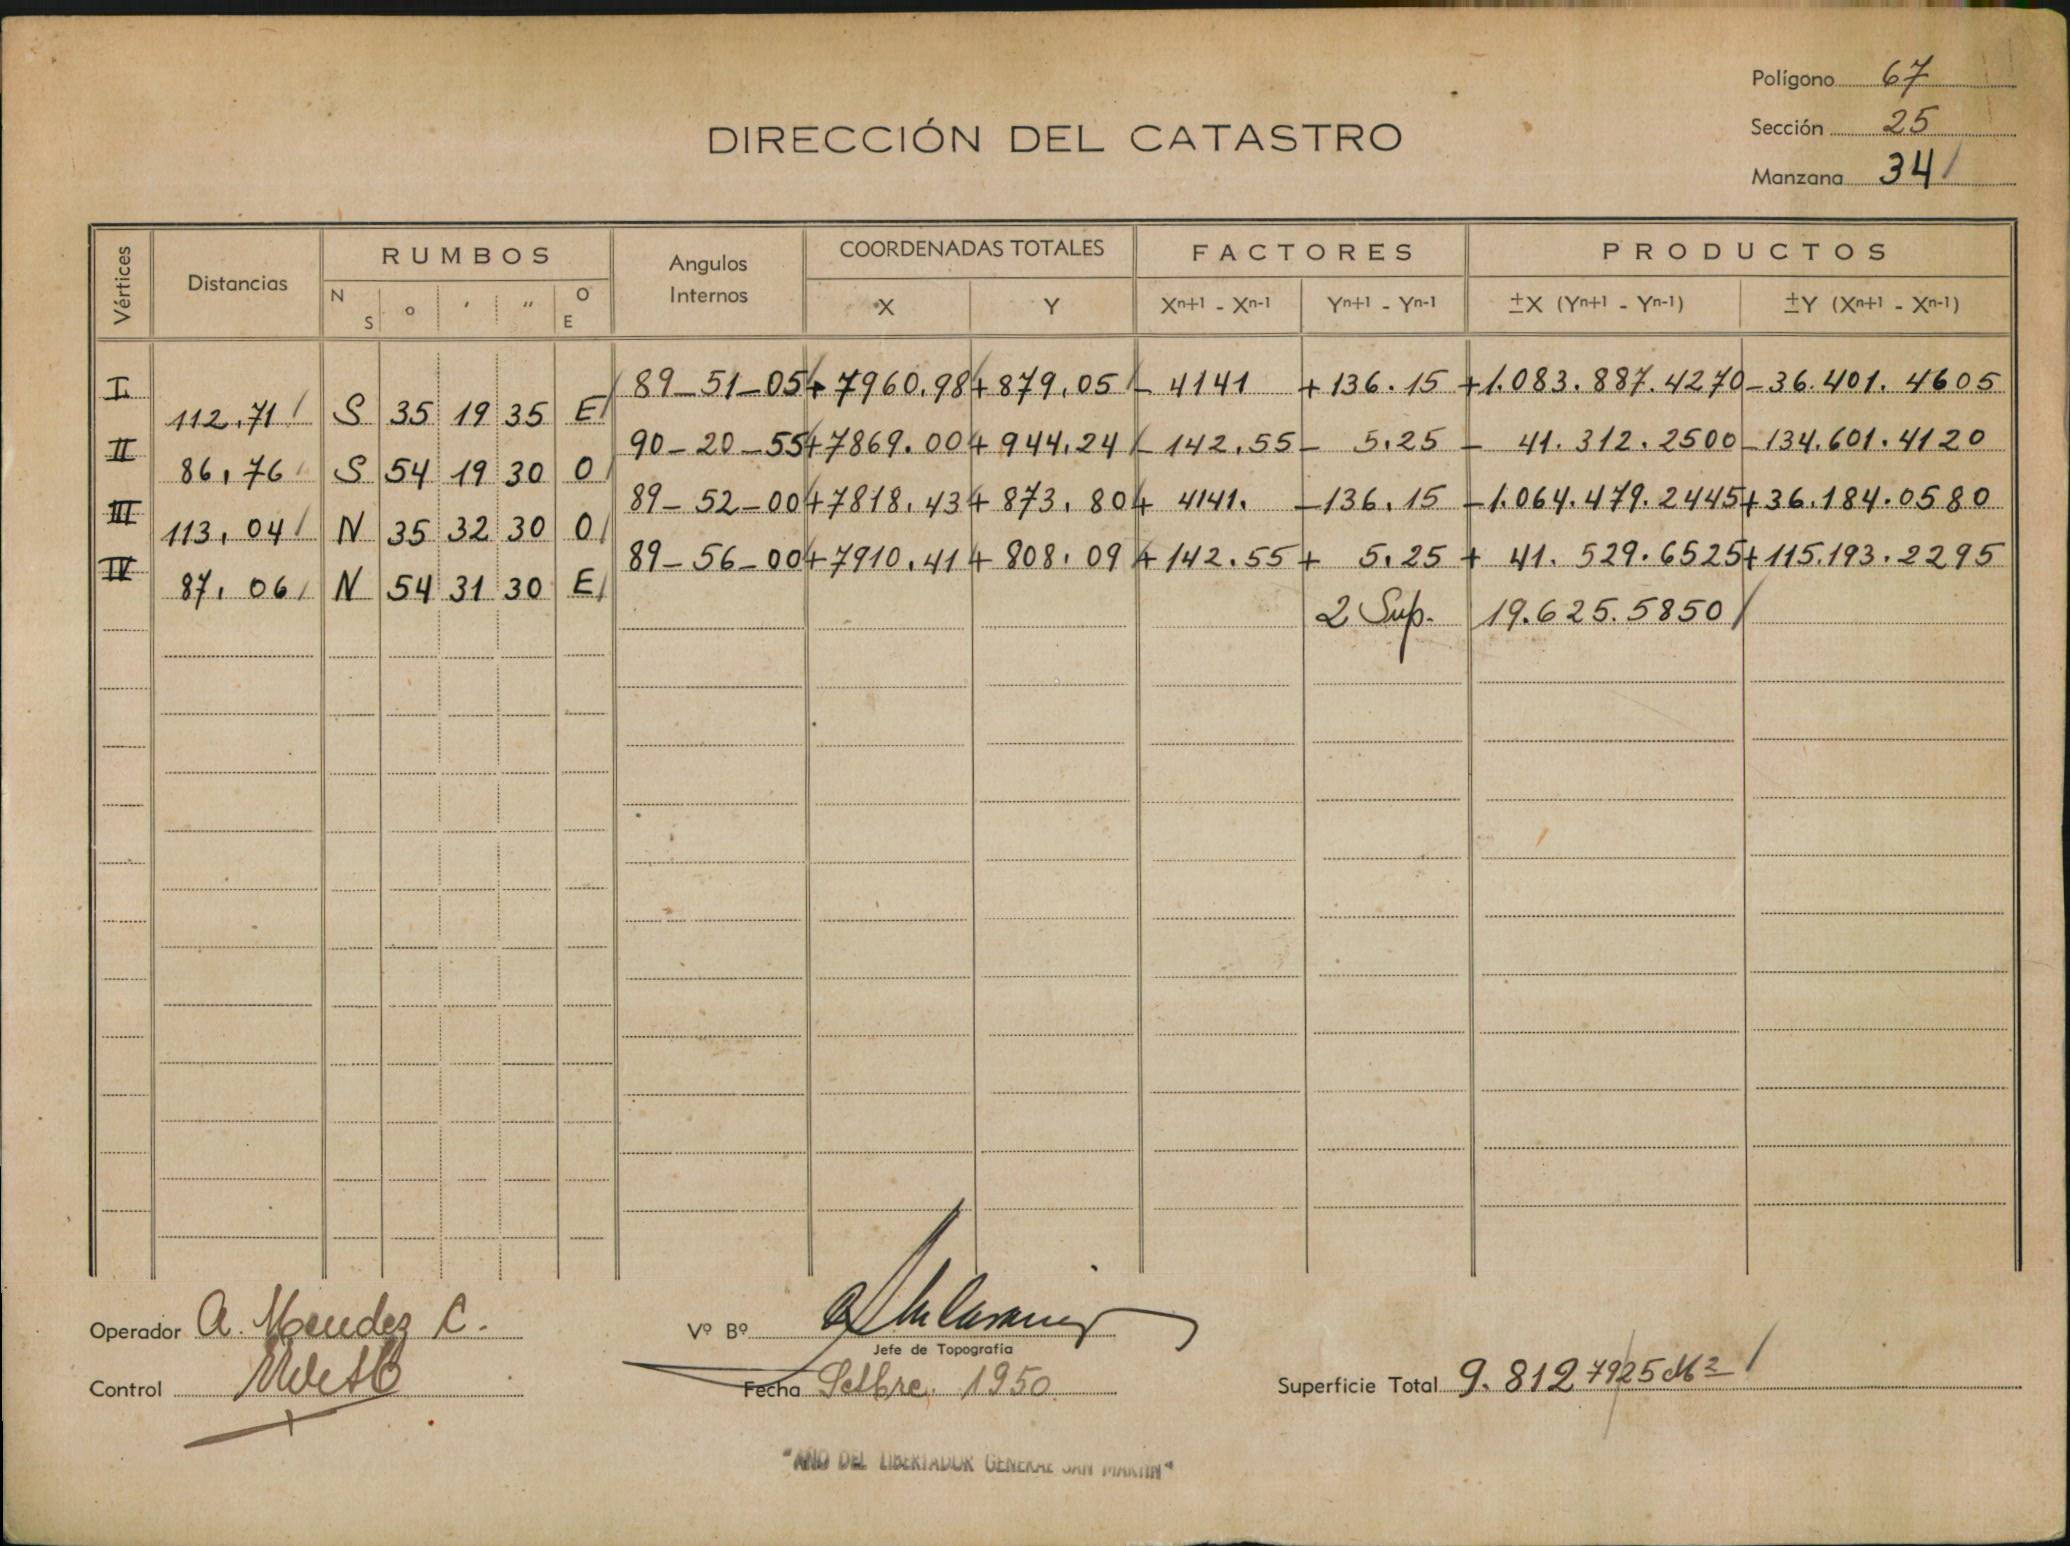 Polígono 67
Sección 25
Manzana 34
DIRECCIÓN DEL CATASTRO
Vértices Distancias RUMBOS Angulos Internos COORDENADAS TOTALES FACTORES PRODUCTOS
N S o ' " O E X Y Xn+1 - Xn-1 Yn+1 - Yn-1 ±X (Yn+1 - Yn-1) ±Y (Xn+1 - Xn-1)
I 89-51-05 +7960.98 +879.05 - 4141 +136.15 +1.083.887.4270 -36.401.4605
112,71 S 35 19 35 E
II 90-20-55 +7869.00 +944.24 - 142.55 - 5.25 - 41.312.2500 -134.601.4120
86,76 S 54 19 30 O
III 89-52-00 +7818.43 +873.80 + 4141. -136.15 -1.064.479.2445 +36.184.0580
113,04 N 35 32 30 O
IV 89-56-00 +7910.41 +808.09 +142.55 + 5.25 + 41.529.6525 +115.193.2295
87,06 N 54 31 30 E
2 Sup. 19.625.5850
Operador A. Mendez C.
Vº Bº
Jefe de Topografía
Control
Fecha Setbre. 1950
Superficie Total 9.812 7925 M2
"AÑO DEL LIBERTADOR GENERAL SAN MARTIN"